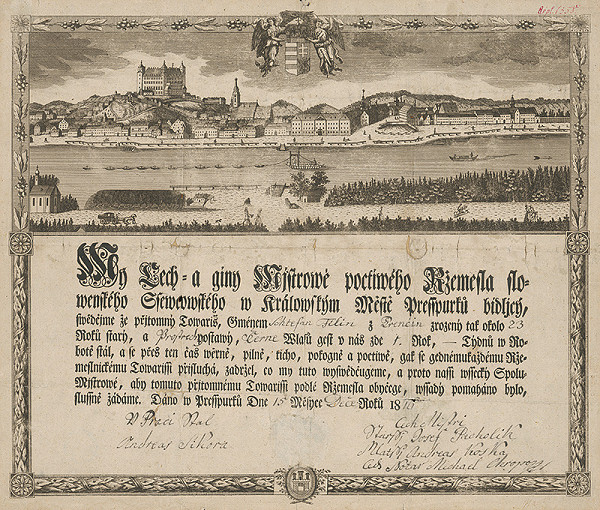 My Cech- a giny Mystrowé poctiwého Ržemesla slo-
wenského Ssewcowského w Královským Městě Presspurků bidlicý,
swědčíme že přítomný Towariš, Gménem Schtefan Filin z Trenčin zrozený tak okolo 23
Roků starý, a postawy, Černe Wlasů gest v nás zde 1. Rok, — Týdnů w Ro-
botě stál, a se přes ten čas wěrně, pilně, ticho, pokogně a poctiwě, gak se gednémukaždému Rže-
meslnickému Towarissi přisluchá, zadržel, co my tuto wyswědčugeme, a proto nassi wssecky Spolu-
Mistrowé, aby tomuto přítomnému Towarissi podlé Ržemesla obyčege, wssady pomáháno bylo,
slussně žádáme. Dáno w Pressporku Dne 15 Měsyce Dice Roků 18
V Praci Stal
Andreas Sikora
Cech Mistri
Starssy Josef
Mlatssy Andreas Koska
Cech Notar Michael